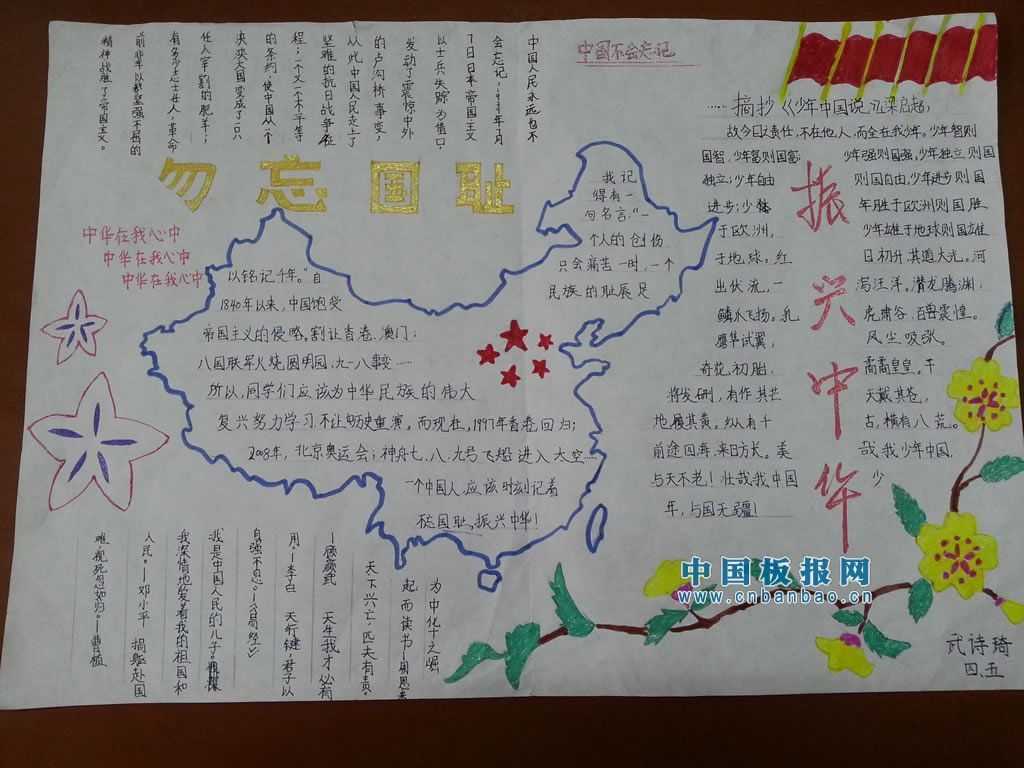 中国不会忘记
中国人民永远也不
会忘记:1937年7月
7日日本帝国主义
以士兵失踪为借口,
发动了震惊中外
的"卢沟桥"事变,
从此中国人民走上了
坚难的抗日战争征
程;一个又一个不平等
的条约,使中国从一个
泱泱大国变成了一只
任人宰割的肥羊;
有多少志士仁人,革命
前辈以坚强不屈的
精神战胜了帝国主义。
勿忘国耻
中华在我心中
中华在我心中
中华在我心中
我记
得有一
句名言:"一
个人的创伤
只会痛苦一时,一个
民族的耻辰足
以铭记千年。"自
1840年以来,中国饱受
帝国主义的侵略。割让香港、澳门;
八国联军火烧圆明园、九一八事变……
所以,同学们应该为中华民族的伟大
复兴努力学习,不让历史重演。而现在,1997年香港回归;
2008年,北京奥运会;神舟七、八、九号飞船进入太空……
一个中国人,应该时刻记着
国耻,振兴中华!
为中化十之崛
起而读书—周恩来
天下兴亡,匹夫有责。
—顾颜武 天生我才必有
用。—李白 天行键,君子以
自强不息。—《易经》
我是中国人民的儿子。
我深情地爱着我的祖国和
人民。—邓小平 捐躯赴国
难,视死忽如归。—曹植
……摘抄《少年中国说》梁启超
故今日之责任,不在他人,而全在我少年。少年智则
国智,少年富则国富; 少年强则国强,少年独立则国
独立;少年自由 则国自由,少年进步则国
进步;少 年胜于欧洲则国胜
于欧洲, 少年雄于地球则国雄
于地球。红 日初升,其道大光。河
出伏流,一 泻汪洋。潜龙腾渊,
鳞爪飞扬。乳 虎啸谷,百兽震惶。
鹰隼试翼, 风尘吸张。
奇花初胎, 矞矞皇皇。干
将发硎,有作其芒 天戴其苍,
地履其黄。纵有千 古,横有八荒。
前途四海,来日方长。美 哉我少年中国,
与天不老!壮哉我中国 少
年,与国无疆!
振兴中华
中国板报网
www.cnbanbao.cn
武诗琦
四、五